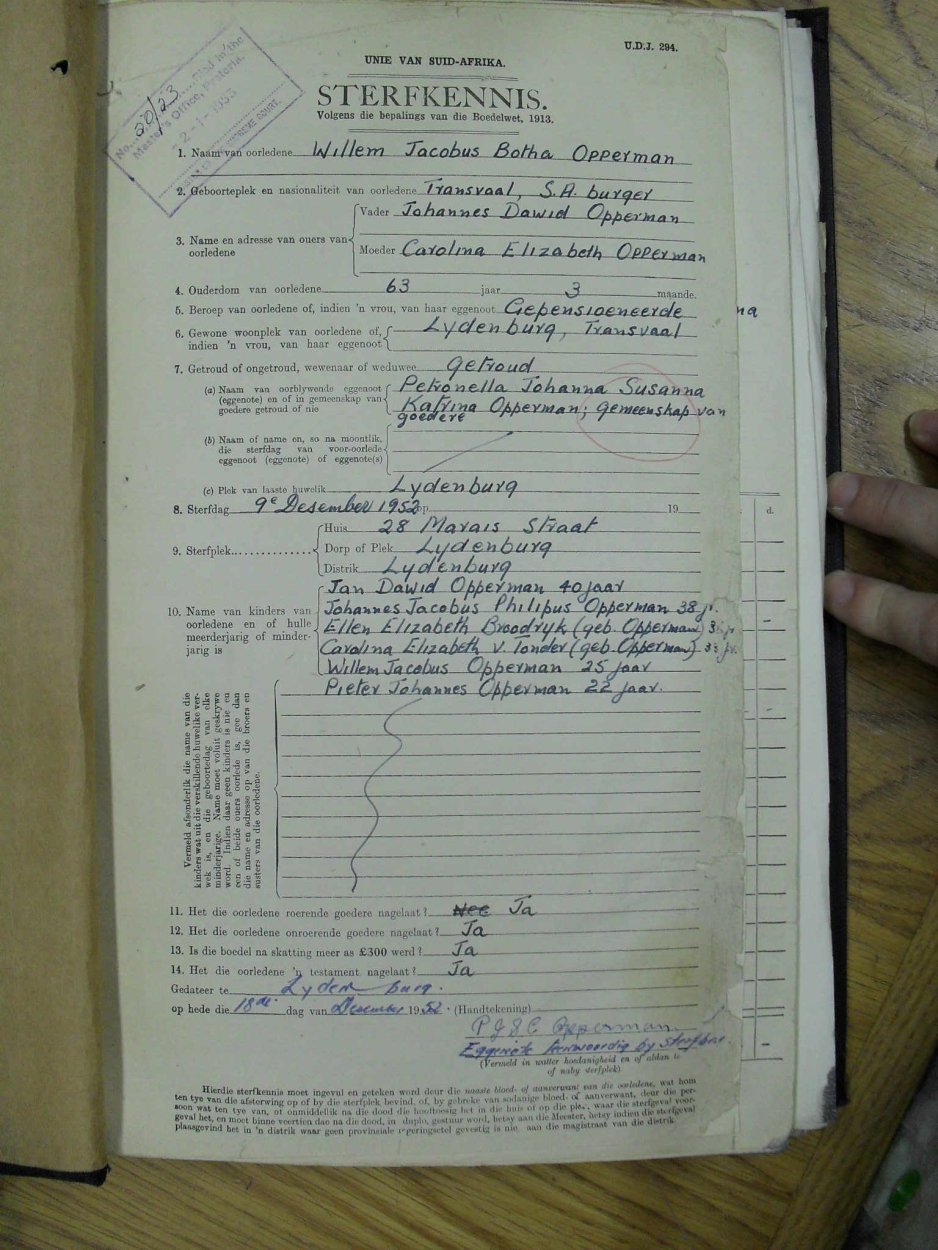 U.D.J. 294.
UNIE VAN SUID-AFRIKA.
STERFKENNIS.
Volgens die bepalings van die Boedelwet, 1913.
No. 20/23 Filed in the
Master's Office, Pretoria.
2-1-1953
SUPREME COURT.
1. Naam van oorledene Willem Jacobus Botha Opperman
2. Geboorteplek en nasionaliteit van oorledene Transvaal, S.A. burger
3. Name en adresse van ouers van oorledene
Vader Johannes Dawid Opperman
Moeder Carolina Elizabeth Opperman
4. Ouderdom van oorledene 63 jaar 3 maande.
5. Beroep van oorledene of, indien 'n vrou, van haar eggenoot Gepensioeneerde
na
6. Gewone woonplek van oorledene of, indien 'n vrou, van haar eggenoot
Lydenburg, Transvaal
7. Getroud of ongetroud, wewenaar of weduwee getroud
(a) Naam van oorblywende eggenoot (eggenote) en of in gemeenskap van goedere getroud of nie
Petronella Johanna Susanna
Katrina Opperman; gemeenskap van
goedere
(b) Naam of name en, so na moontlik, die sterfdag van voor-oorlede eggenoot (eggenote) of eggenote(s)
(c) Plek van laaste huwelik Lydenburg
8. Sterfdag 9e Desember 1952 op 19
9. Sterfplek
Huis 28 Marais Straat
Dorp of Plek Lydenburg
Distrik Lydenburg
10. Name van kinders van oorledene en of hulle meerderjarig of minderjarig is
Jan Dawid Opperman 40 jaar
Johannes Jacobus Philipus Opperman 38 jr.
Ellen Elizabeth Broodryk (geb. Opperman)
Carolina Elizabeth v. Tonder (geb. Opperman)
Willem Jacobus Opperman 25 jaar
Pieter Johannes Opperman 22 jaar.
Vermeld afsonderlik die name van die
kinders wat uit die verskillende huwelike ver-
wek is, en die geboortedag van elke
minderjarige. Name moet voluit geskrywe
word. Indien daar geen kinders is nie en
een of beide ouers oorlede is, gee dan
die name en adresse op van die broers en
susters van die oorledene.
d.
11. Het die oorledene roerende goedere nagelaat? Nee Ja
12. Het die oorledene onroerende goedere nagelaat? Ja
13. Is die boedel na skatting meer as £300 werd? Ja
14. Het die oorledene 'n testament nagelaat? Ja
Gedateer te Lydenburg.
op hede die 18de dag van Desember 1952. (Handtekening)
P J S C Opperman
Eggenote teenwoordig by sterfbed.
(Vermeld in watter hoedanigheid en of aldan te
of naby sterfplek)
Hierdie sterfkennis moet ingevul en geteken word deur die naaste bloed- of aanverwant van die oorledene, wat hom
ten tye van die afsterwing op of by die sterfplek bevind, of, by gebreke van sodanige bloed- of aanverwant, deur die per-
soon wat ten tye van, of onmiddellik na die dood die hooftoesig het in die huis of op die plek, waar die sterfgeval voor-
geval het, en moet binne veertien dae na die dood, in duplo, gestuur word, hetsy aan die Meester, hetsy indien die sterfgeval
plaasgevind het in 'n distrik waar geen provinsiale regeringsetel gevestig is nie aan die magistraat van die distrik.